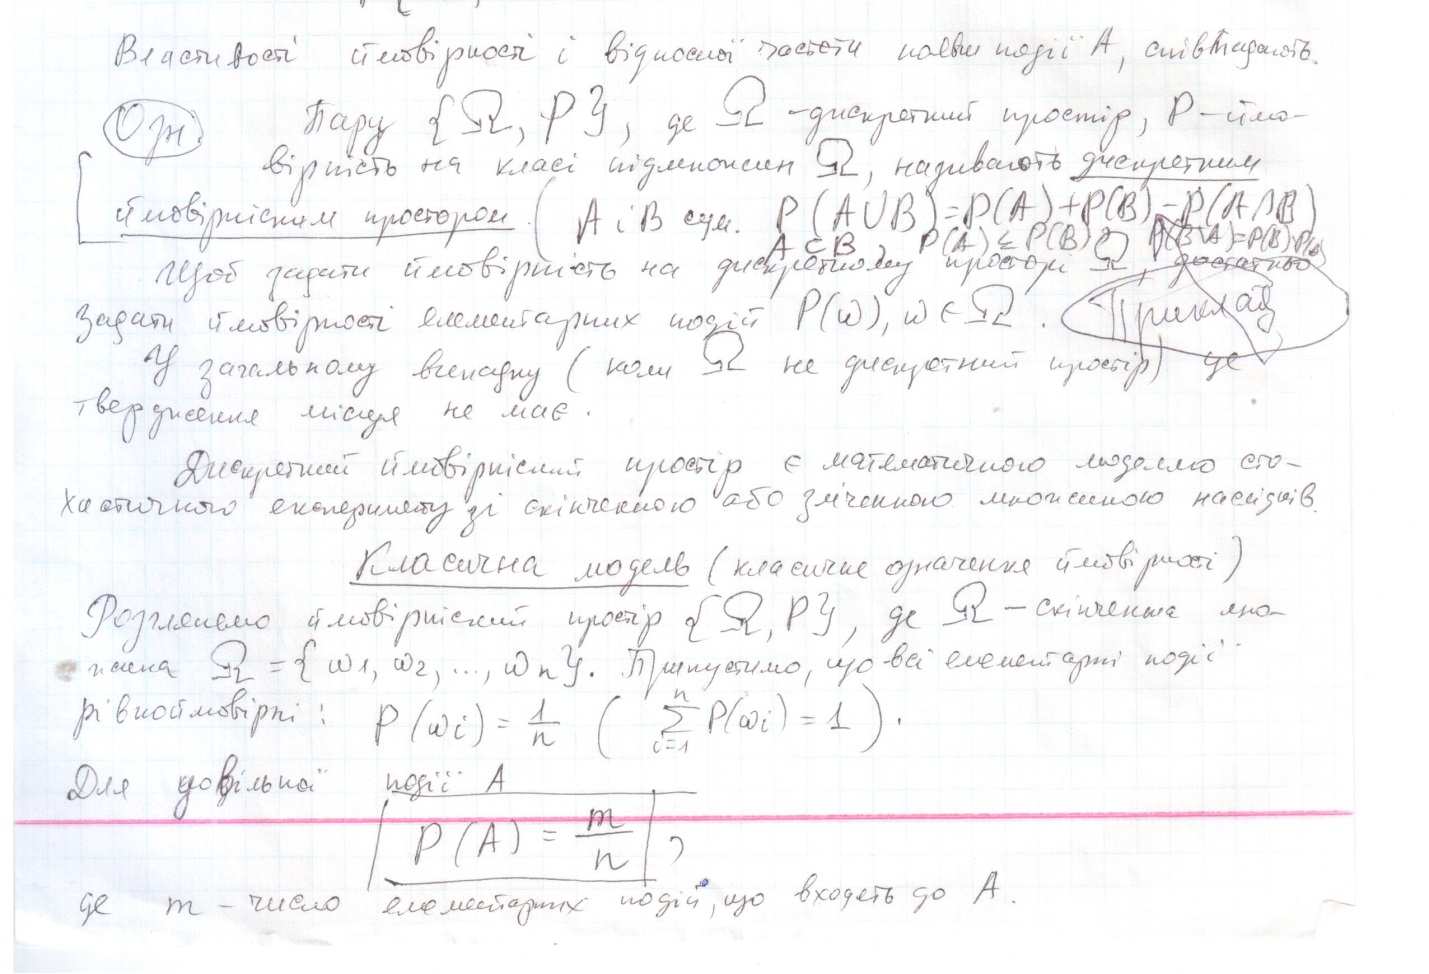 Властивості ймовірності і відносної частоти появи події A, співпадають.
Озн. Пару {Ω, P}, де Ω - дискретний простір, P - ймо-
вірність на класі підмножин Ω, називають дискретним
ймовірнісним простором. ( A і B сум. P(A∪B)=P(A)+P(B)-P(A∩B)
A⊂B, P(A)≤P(B), P(B\A)=P(B)-P(A)
Щоб задати ймовірність на дискретному просторі Ω, достатньо
задати ймовірності елементарних подій P(ω), ω∈Ω. Приклад
У загальному випадку (коли Ω не дискретний простір) це
твердження місця не має.
Дискретний ймовірнісний простір є математичною моделлю сто-
хастичного експерименту зі скінченною або зліченною множиною наслідків.
Класична модель (класичне означення ймовірності)
Розглянемо ймовірнісний простір {Ω, P}, де Ω - скінченна мно-
жина Ω = {ω1, ω2, ..., ωn}. Припустимо, що всі елементарні події
рівноймовірні: P(ωi) = 1/n ( ∑_{i=1}^{n} P(ωi) = 1 ).
Для довільної події A
P(A) = m/n ,
де m - число елементарних подій, що входять до A.